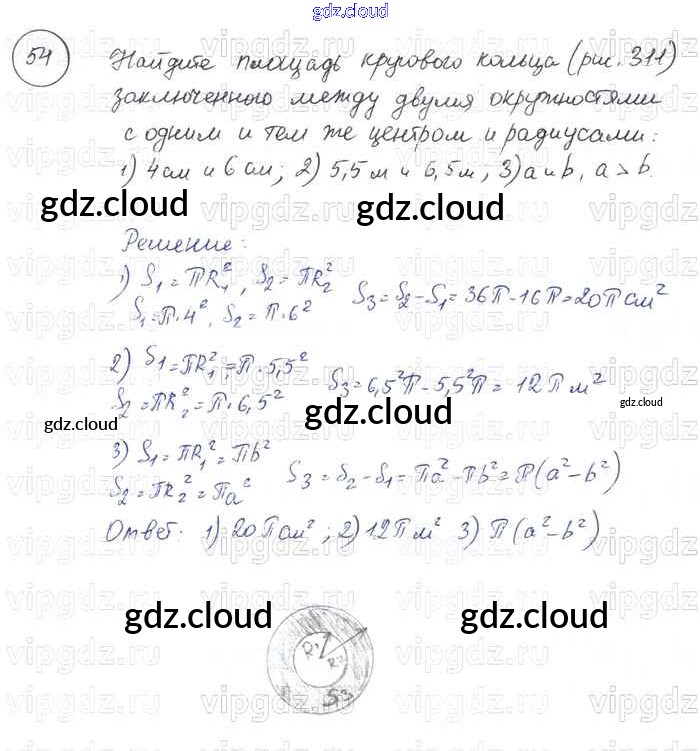 gdz.cloud
54 Найдите площадь кругового кольца (рис. 311)
заключенного между двумя окружностями
с одним и тем же центром и радиусами:
1) 4 см и 6 см; 2) 5,5 м и 6,5 м; 3) a и b, a > b.
gdz.cloud gdz.cloud
Решение:
1) S₁ = ПR₁², S₂ = ПR₂²
S₁ = П·4², S₂ = П·6² S₃ = S₂ - S₁ = 36П - 16П = 20П см²
2) S₁ = ПR₁² = П·5,5²
S₂ = ПR₂² = П·6,5² S₃ = 6,5²П - 5,5²П = 12П м²
gdz.cloud gdz.cloud gdz.cloud
3) S₁ = ПR₁² = Пb²
S₂ = ПR₂² = Пa² S₃ = S₂ - S₁ = Пa² - Пb² = П(a² - b²)
Ответ: 1) 20П см²; 2) 12П м² 3) П(a² - b²)
gdz.cloud gdz.cloud
R₁
R₂
S3
vipgdz.ru